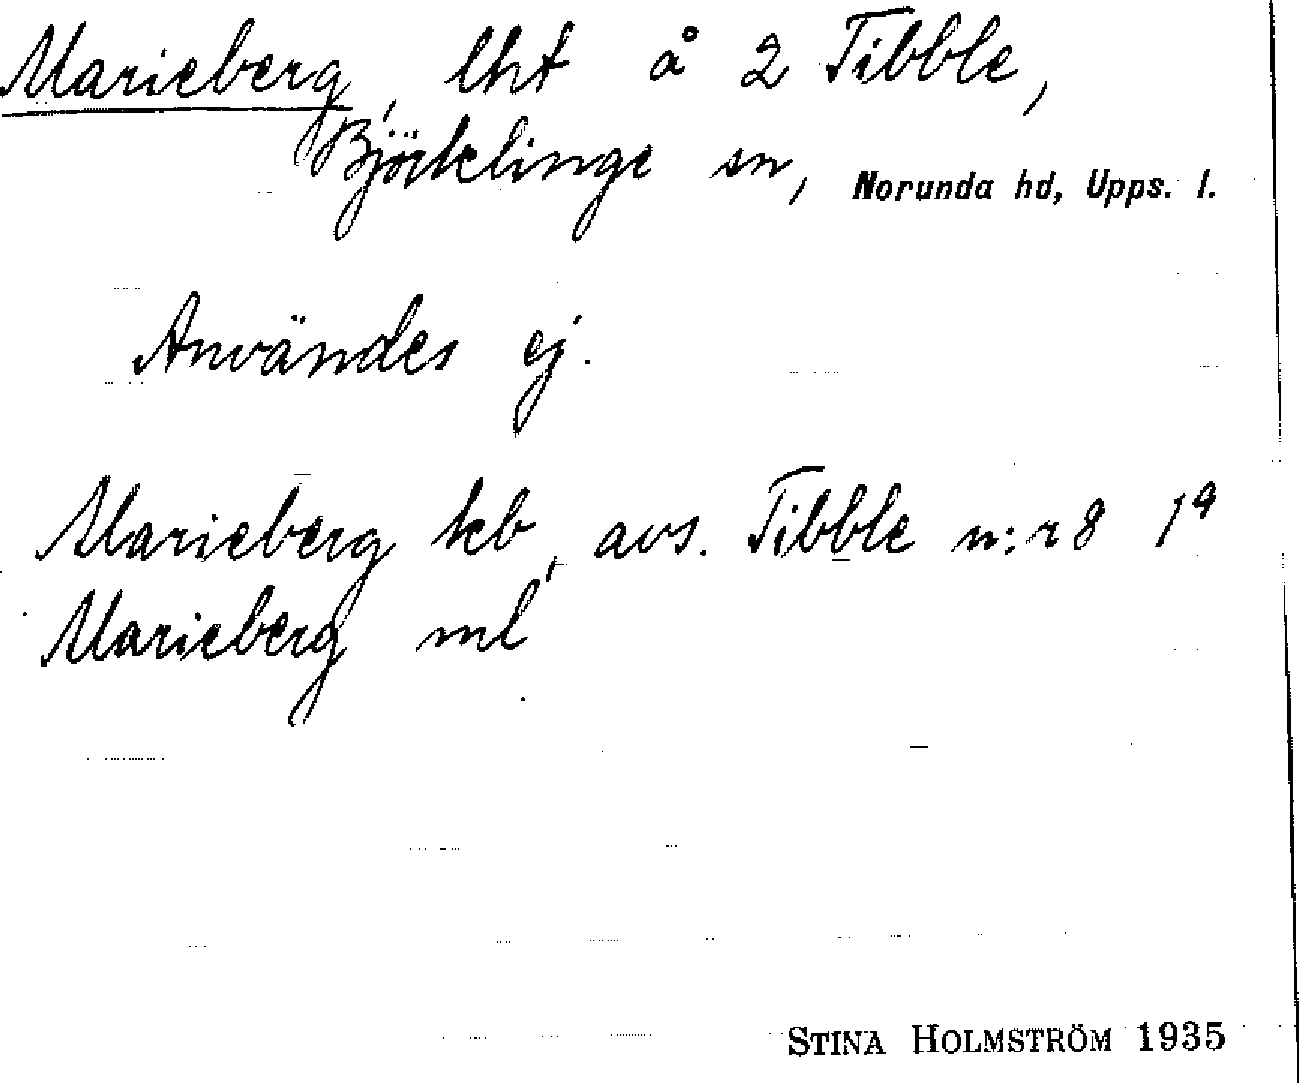 Marieberg, lht å 2 Tibble,
Björklinge sn, Norunda hd, Upps. l.
Användes ej.
Marieberg kb, avs. Tibble n:r 8 1a
Marieberg ml
STINA HOLMSTRÖM 1935